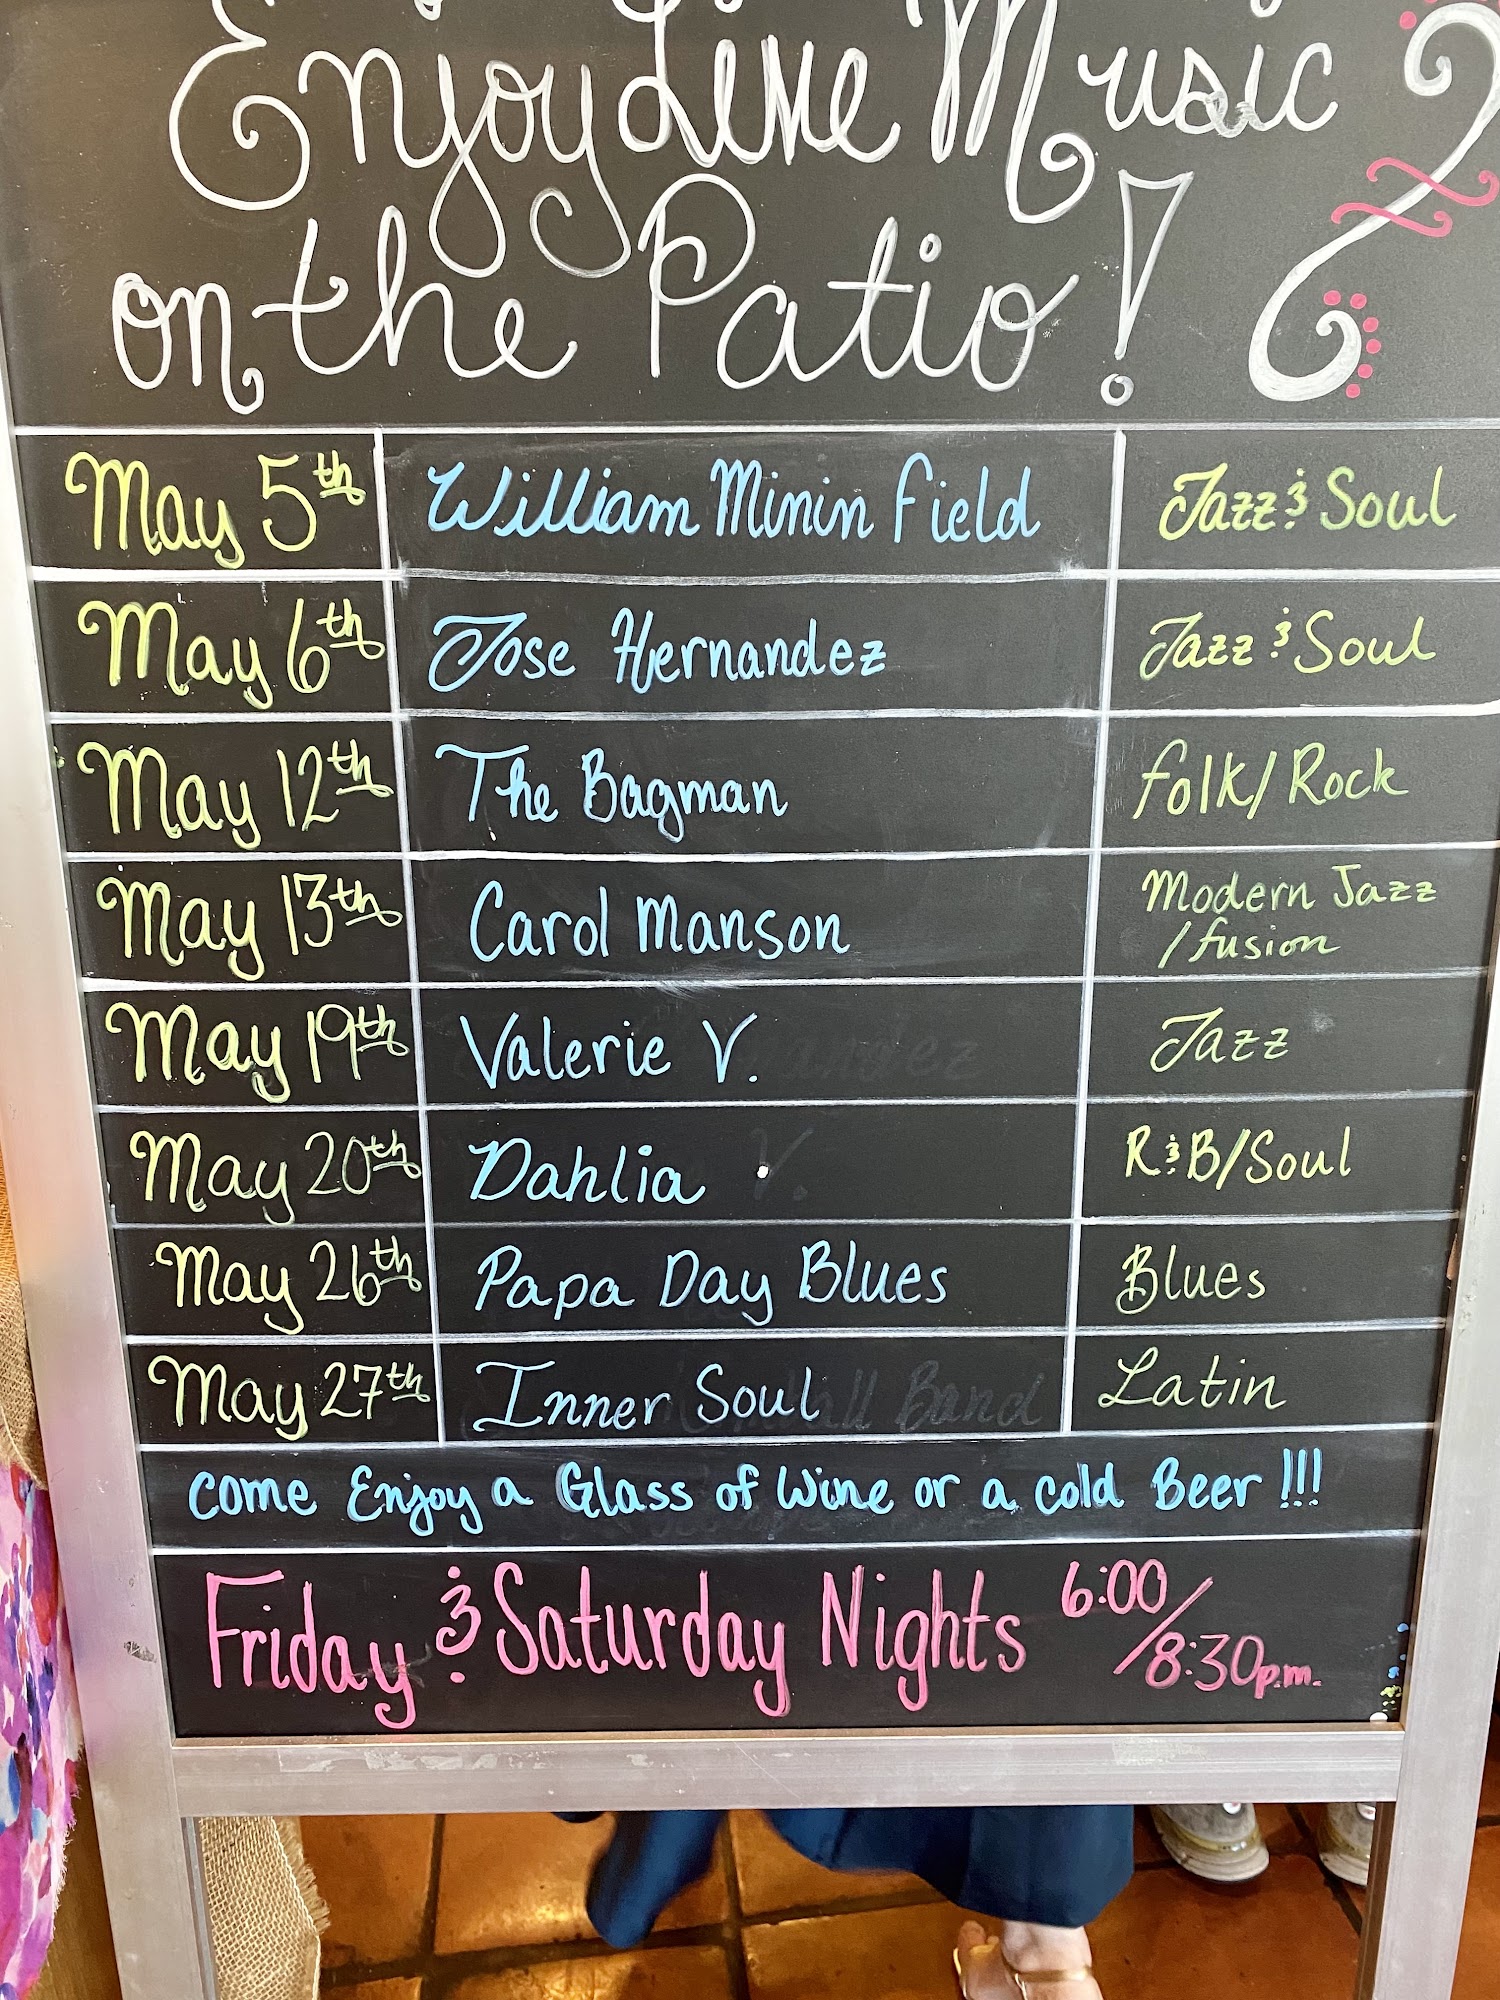 Enjoy Live Music
on the Patio!
May 5th William Mininfield Jazz & Soul
May 6th Jose Hernandez Jazz & Soul
May 12th The Bagman Folk/Rock
May 13th Carol Manson Modern Jazz
/fusion
May 19th Valerie V. Jazz
May 20th Dahlia R&B/Soul
May 26th Papa Day Blues Blues
May 27th Inner Soul Latin
Come Enjoy a Glass of Wine or a cold Beer!!!
Friday & Saturday Nights 6:00/8:30p.m.